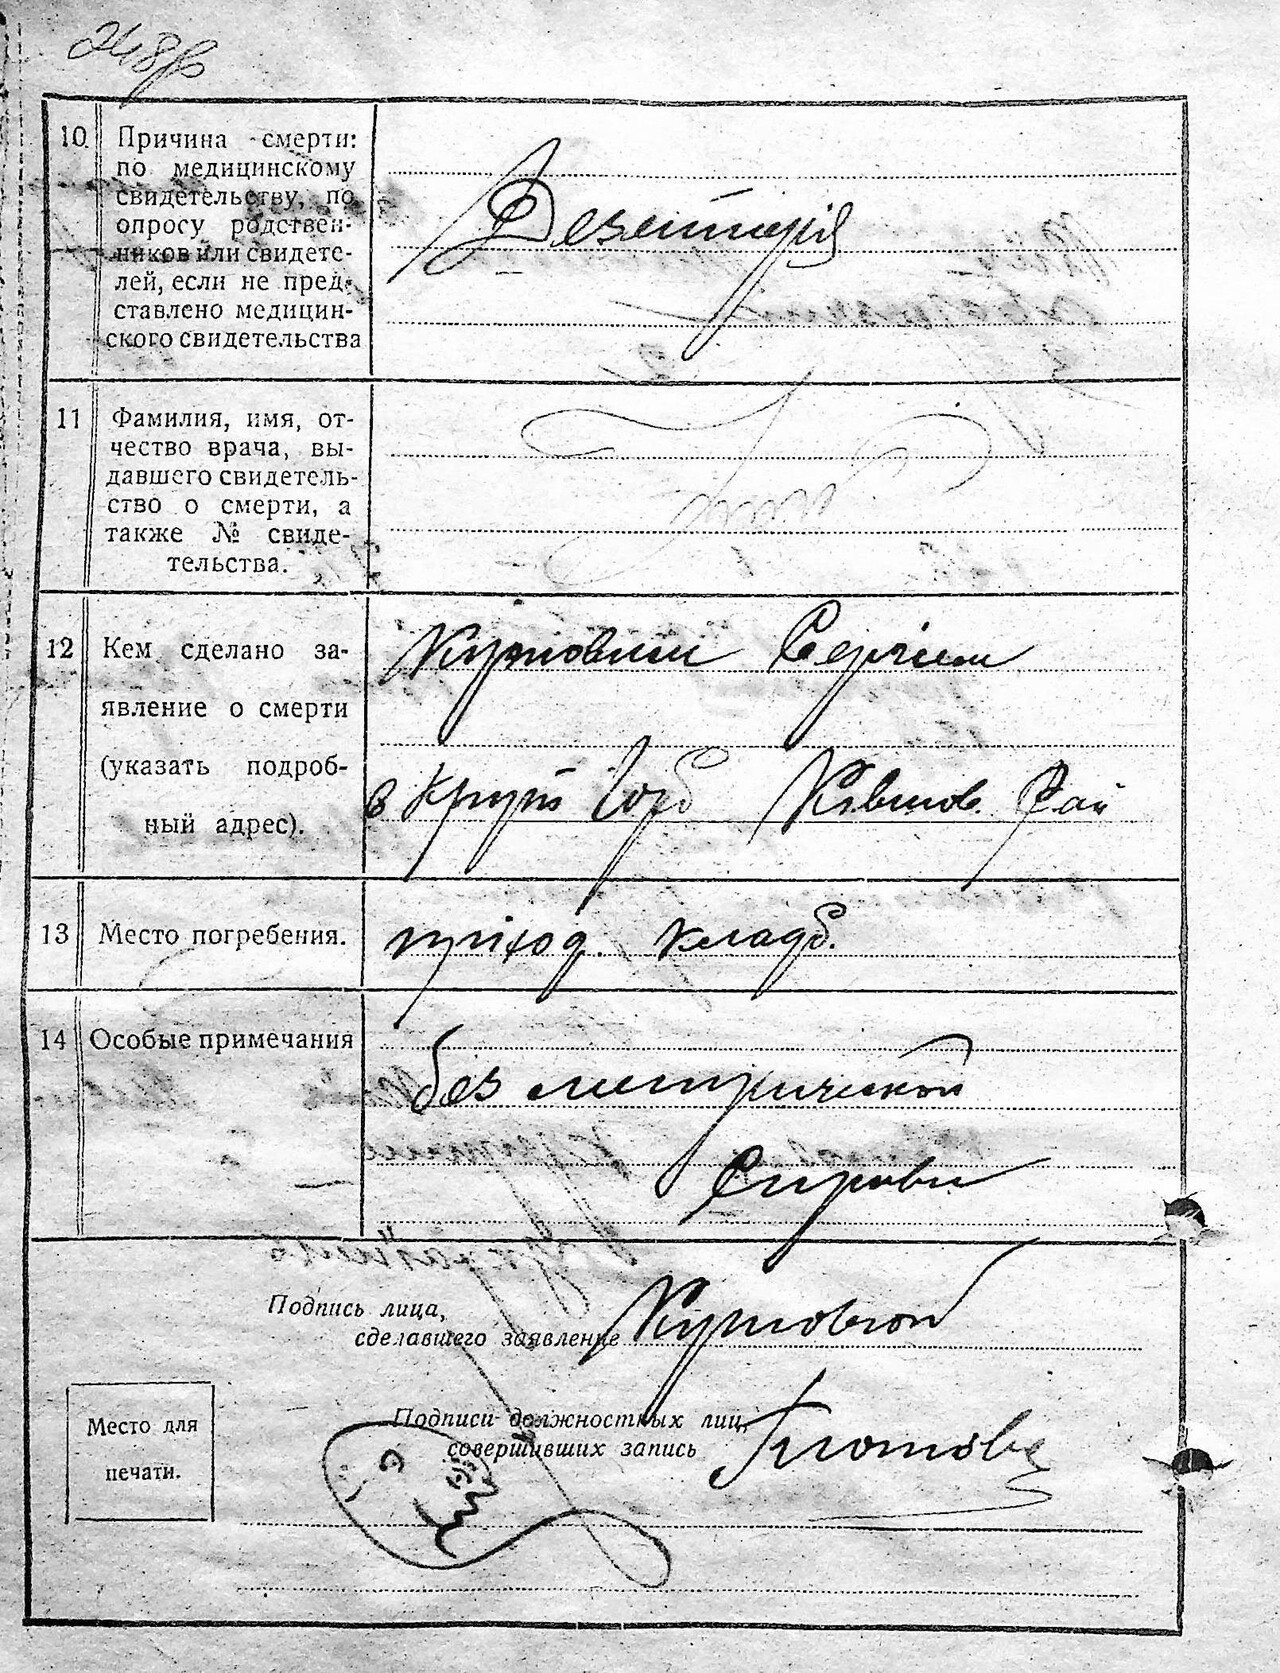 10
Причина смерти:
по медицинскому
свидетельству, по
опросу родствен-
ников или свидете-
лей, если не пред-
ставлено медицин-
ского свидетельства
Дезентерія
11
Фамилия, имя, от-
чество врача, вы-
давшего свидетель-
ство о смерти, а
также № свиде-
тельства.
12
Кем сделано за-
явление о смерти
(указать подроб-
ный адрес).
Сергіем
в Крут Горб Рай
13
Место погребения.
приход. кладб.
14
Особые примечания
без метрической
Справки
Подпись лица,
сделавшего заявление
Подписи должностных лиц,
совершивших запись
Место для
печати.